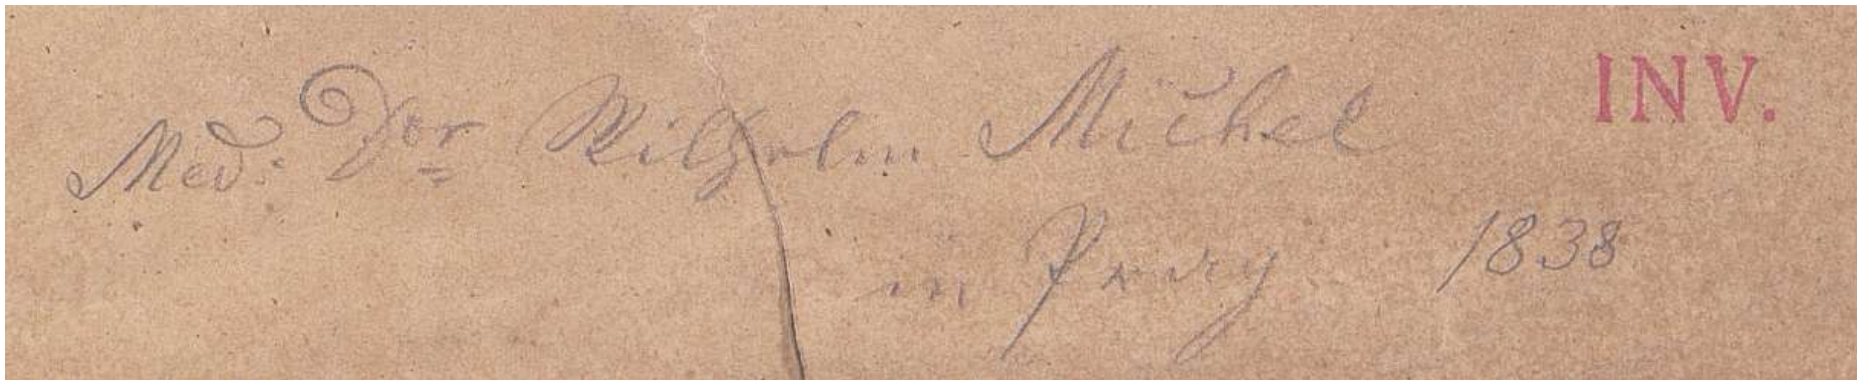 Med: Dor Wilhelm Michel INV.
in Prag 1838